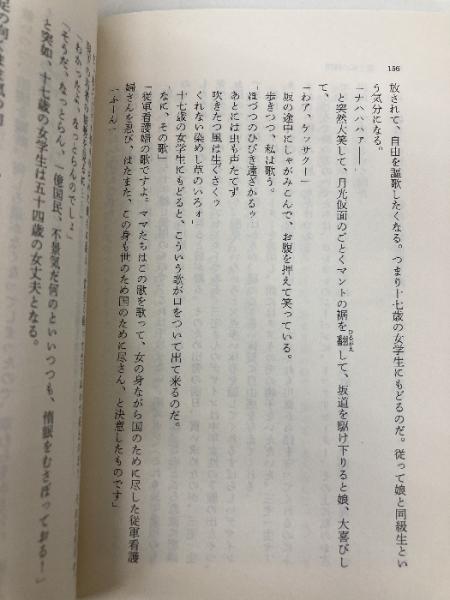 156
放されて、自由を謳歌したくなる。つまり十七歳の女学生にもどるのだ。従って娘と同級生とい
う気分になる。
「ナハハハァ――
と突然大笑して、月光仮面のごとくマントの裾を翻して、坂道を駆け下りると娘、大喜びし
ひるがえ
「わァ、ケッサクー」
坂の途中にしゃがみこんで、お腹を押えて笑っている。
歩きつつ、私は歌う。
「ほづつのひびき遠ざかるゥ
あとには虫も声たてず
吹きたつ風は生ぐさくゥ
くれない染めし草のいろォ」
十七歳の女学生にもどると、こういう歌が口をついて出て来るのだ。
「なに、その歌」
「従軍看護婦の歌ですよ。ママたちはこの歌を歌って、女の身ながら国のために尽した従軍看護
婦さんを忍び、はたまた、この身も世のため国のために尽さん、と決意したものです」
「ふーん」
と突如、十七歳の女学生は五十四歳の女丈夫となる。
億国民、不景気だ何のといいつつも、惰眠をむさぼっておる！」
「そうだ。なっとらん、
「わかったよ、なっとらんのでしょ」